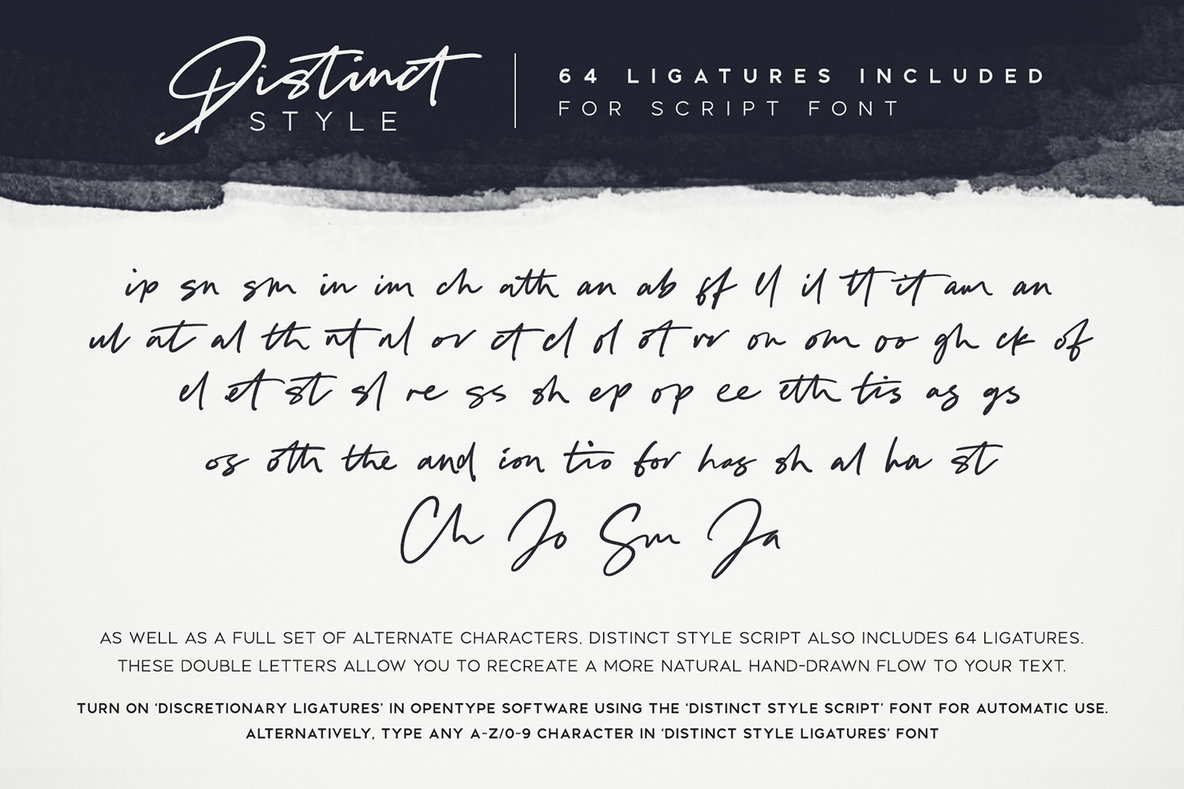 Distinct
STYLE
64 LIGATURES INCLUDED
FOR SCRIPT FONT
ip sn sm in im ch ath an ab ff ll il tt it am an
ul at al th nt nl or ct cl ol ot rr on om oo gh ck of
el et st sl re ss sh ep op ee eth tis as gs
os oth the and ion tio for has sh al ha st
Ch Jo Sm Ja
AS WELL AS A FULL SET OF ALTERNATE CHARACTERS, DISTINCT STYLE SCRIPT ALSO INCLUDES 64 LIGATURES.
THESE DOUBLE LETTERS ALLOW YOU TO RECREATE A MORE NATURAL HAND-DRAWN FLOW TO YOUR TEXT.
TURN ON 'DISCRETIONARY LIGATURES' IN OPENTYPE SOFTWARE USING THE 'DISTINCT STYLE SCRIPT' FONT FOR AUTOMATIC USE.
ALTERNATIVELY, TYPE ANY A-Z/0-9 CHARACTER IN 'DISTINCT STYLE LIGATURES' FONT